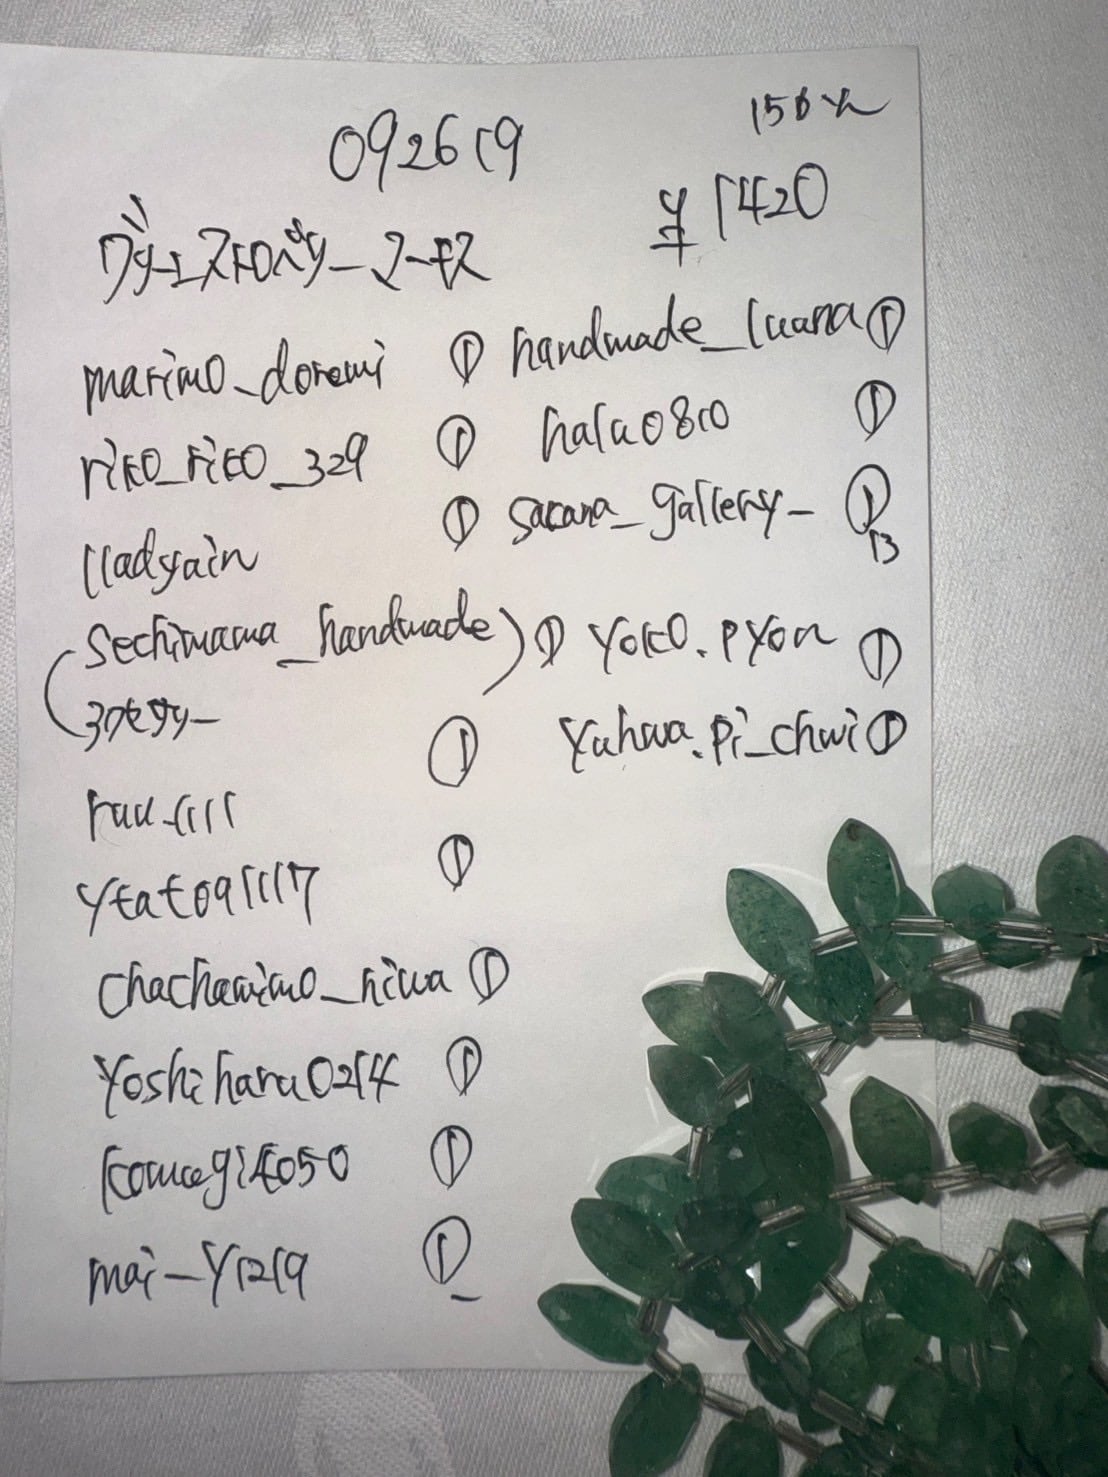 092619
150
¥1420
グリーンストロベリーマーキス
marimo_doremi ①
riko_riko_329 ①
lladyain ①
(sechimama_handmade) ①
ruu_1111 ①
ytato91117 ①
chachamimo_niwa ①
yoshiharu0214 ①
komagi4050 ①
mai_y1219 ①
handmade_luana ①
halu0810 ①
sacana_gallery_ ①
13
yoko.pyon ①
yuhwa.pi_chwi ①